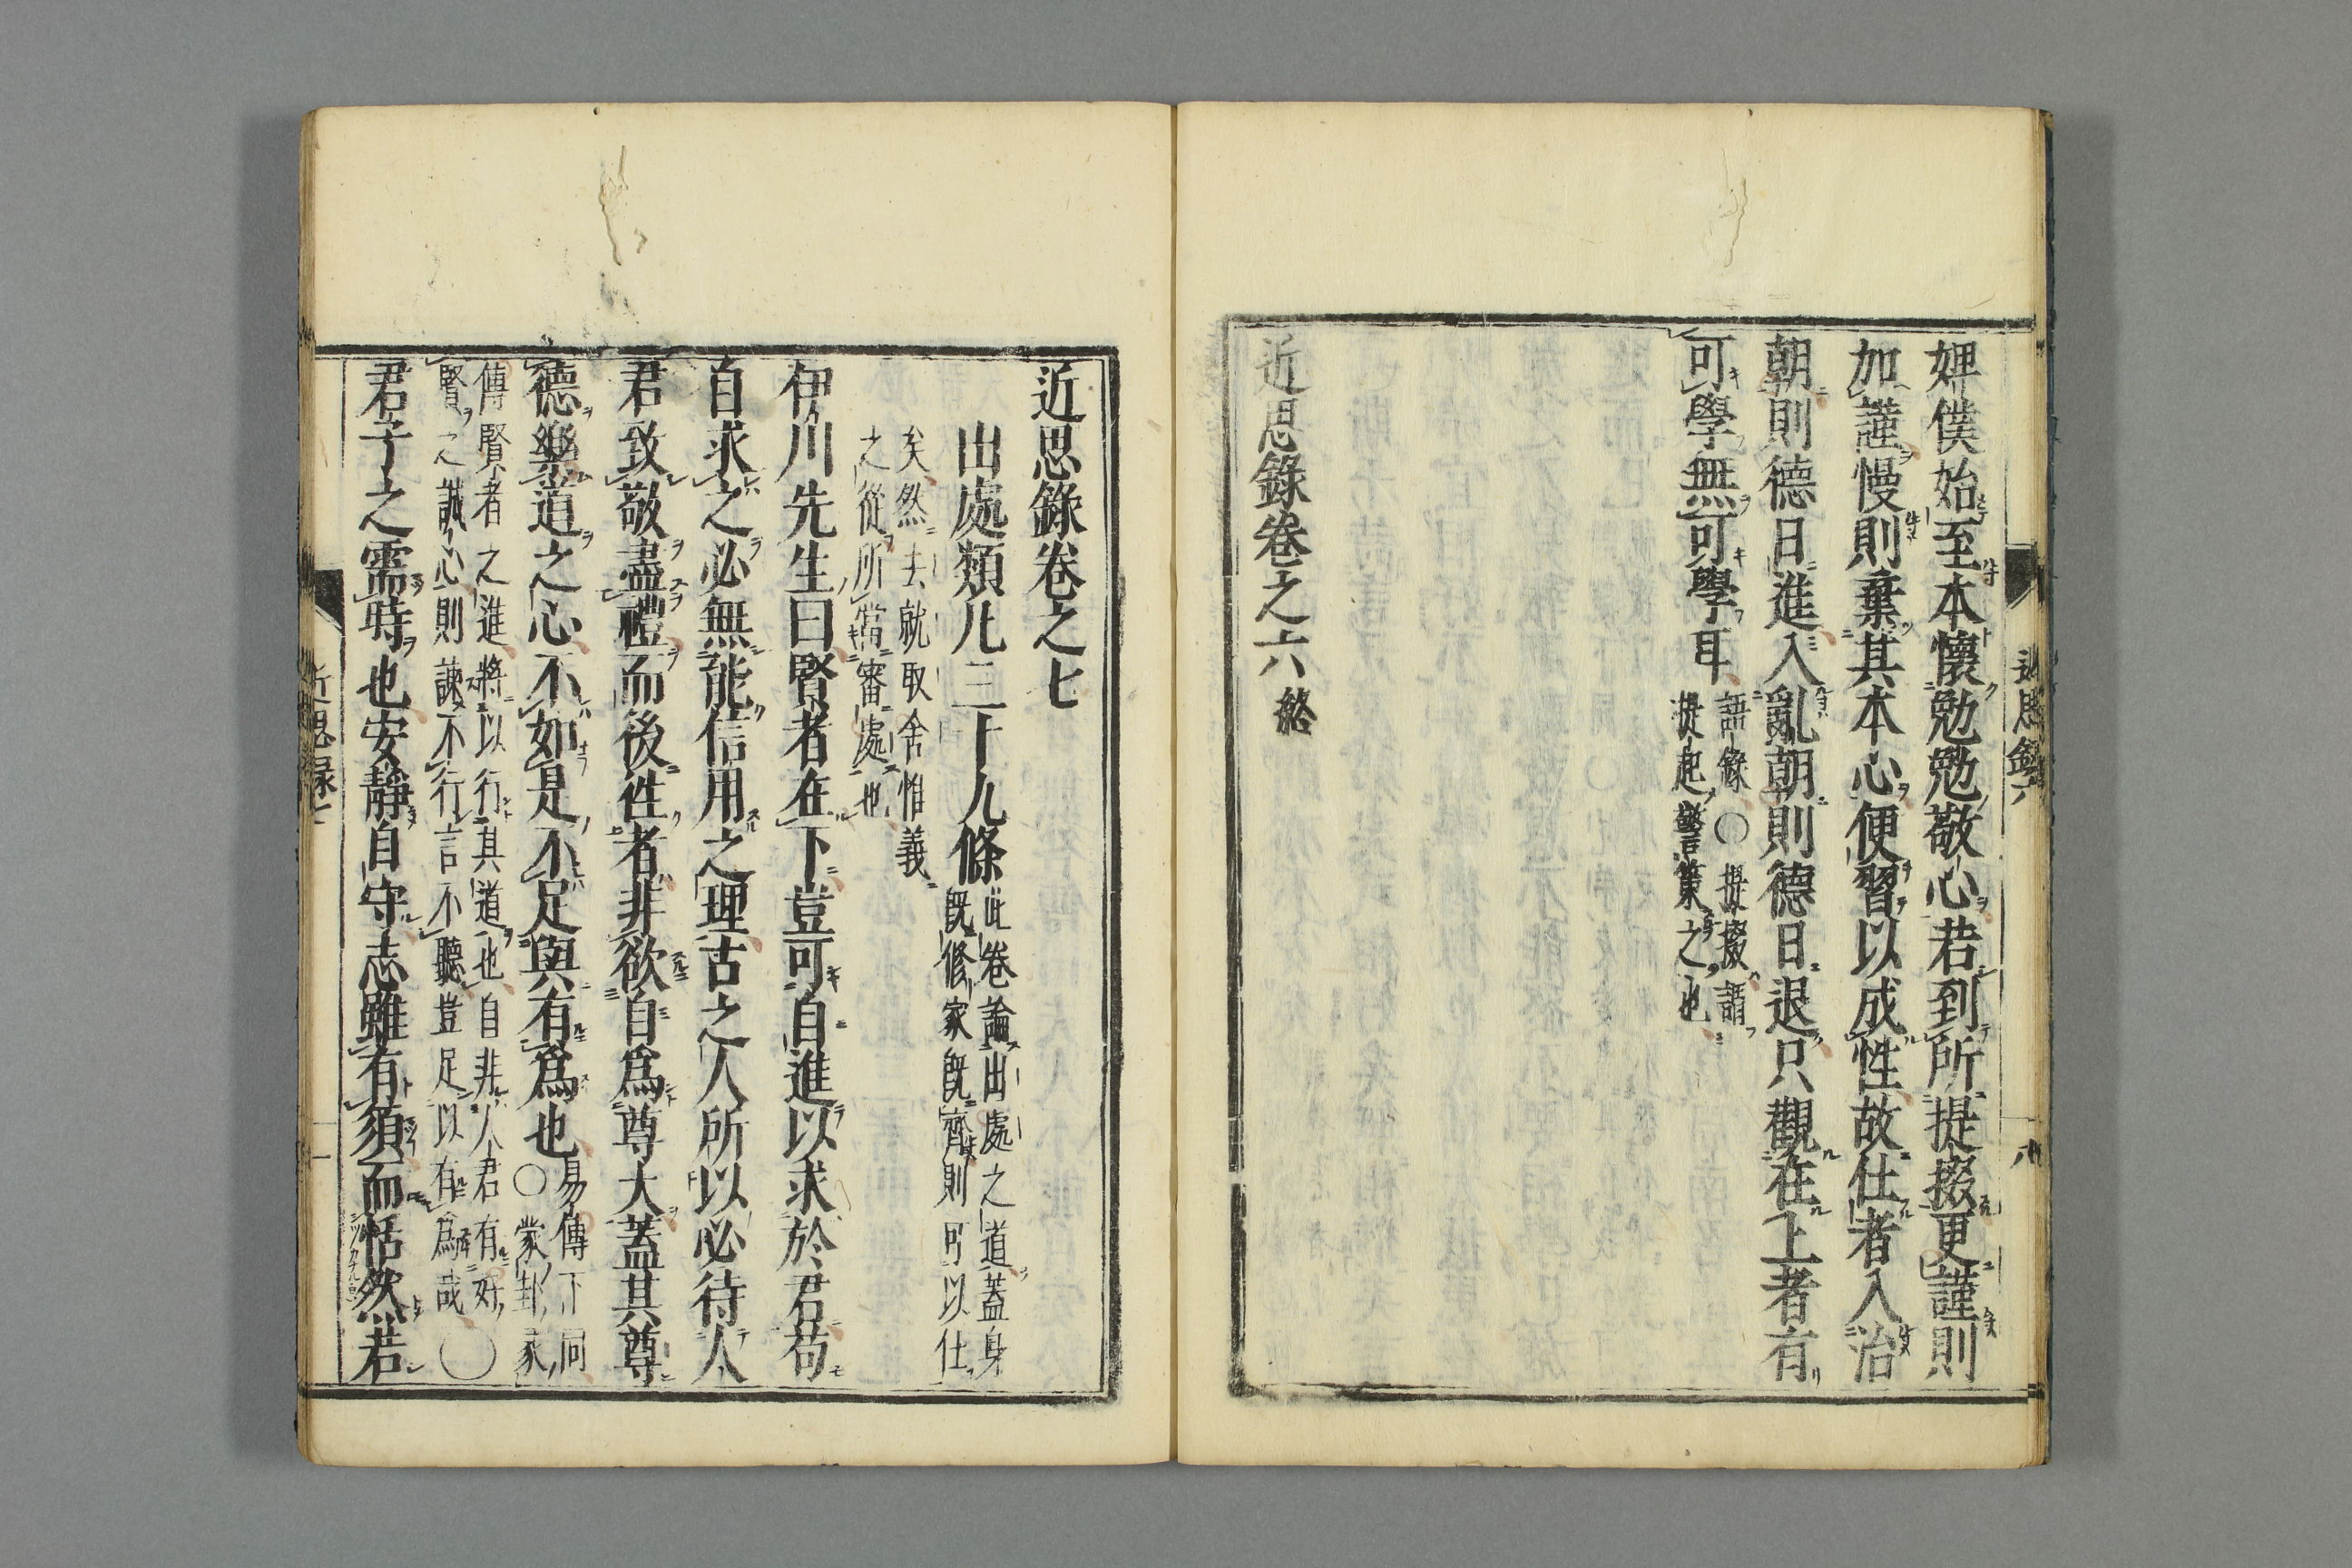 婢僕始至本懷勉勉敬心若到所提掇更謹則
加謹慢則棄其本心便習以成性故仕者入治
朝則德日進入亂朝則德日退只觀在上者有
可學無可學耳
語錄〇提掇謂
提起警策之也
近思錄卷之六終
近思錄卷之七
出處類凡三十九條
此卷論出處之道蓋身
既修家既齊則可以仕
矣然去就取舍惟義
之從所當審處也
伊川先生曰賢者在下豈可自進以求於君苟
自求之必無能信用之理古之人所以必待人
君致敬盡禮而後往者非欲自爲尊大蓋其尊
德樂道之心不如是不足與有爲也
易傳下同
〇蒙卦彖
傳賢者之進將以行其道也自非人君有好
賢之誠心則諫不行言不聽豈足以有爲哉〇
君子之需時也安靜自守志雖有須而恬然若